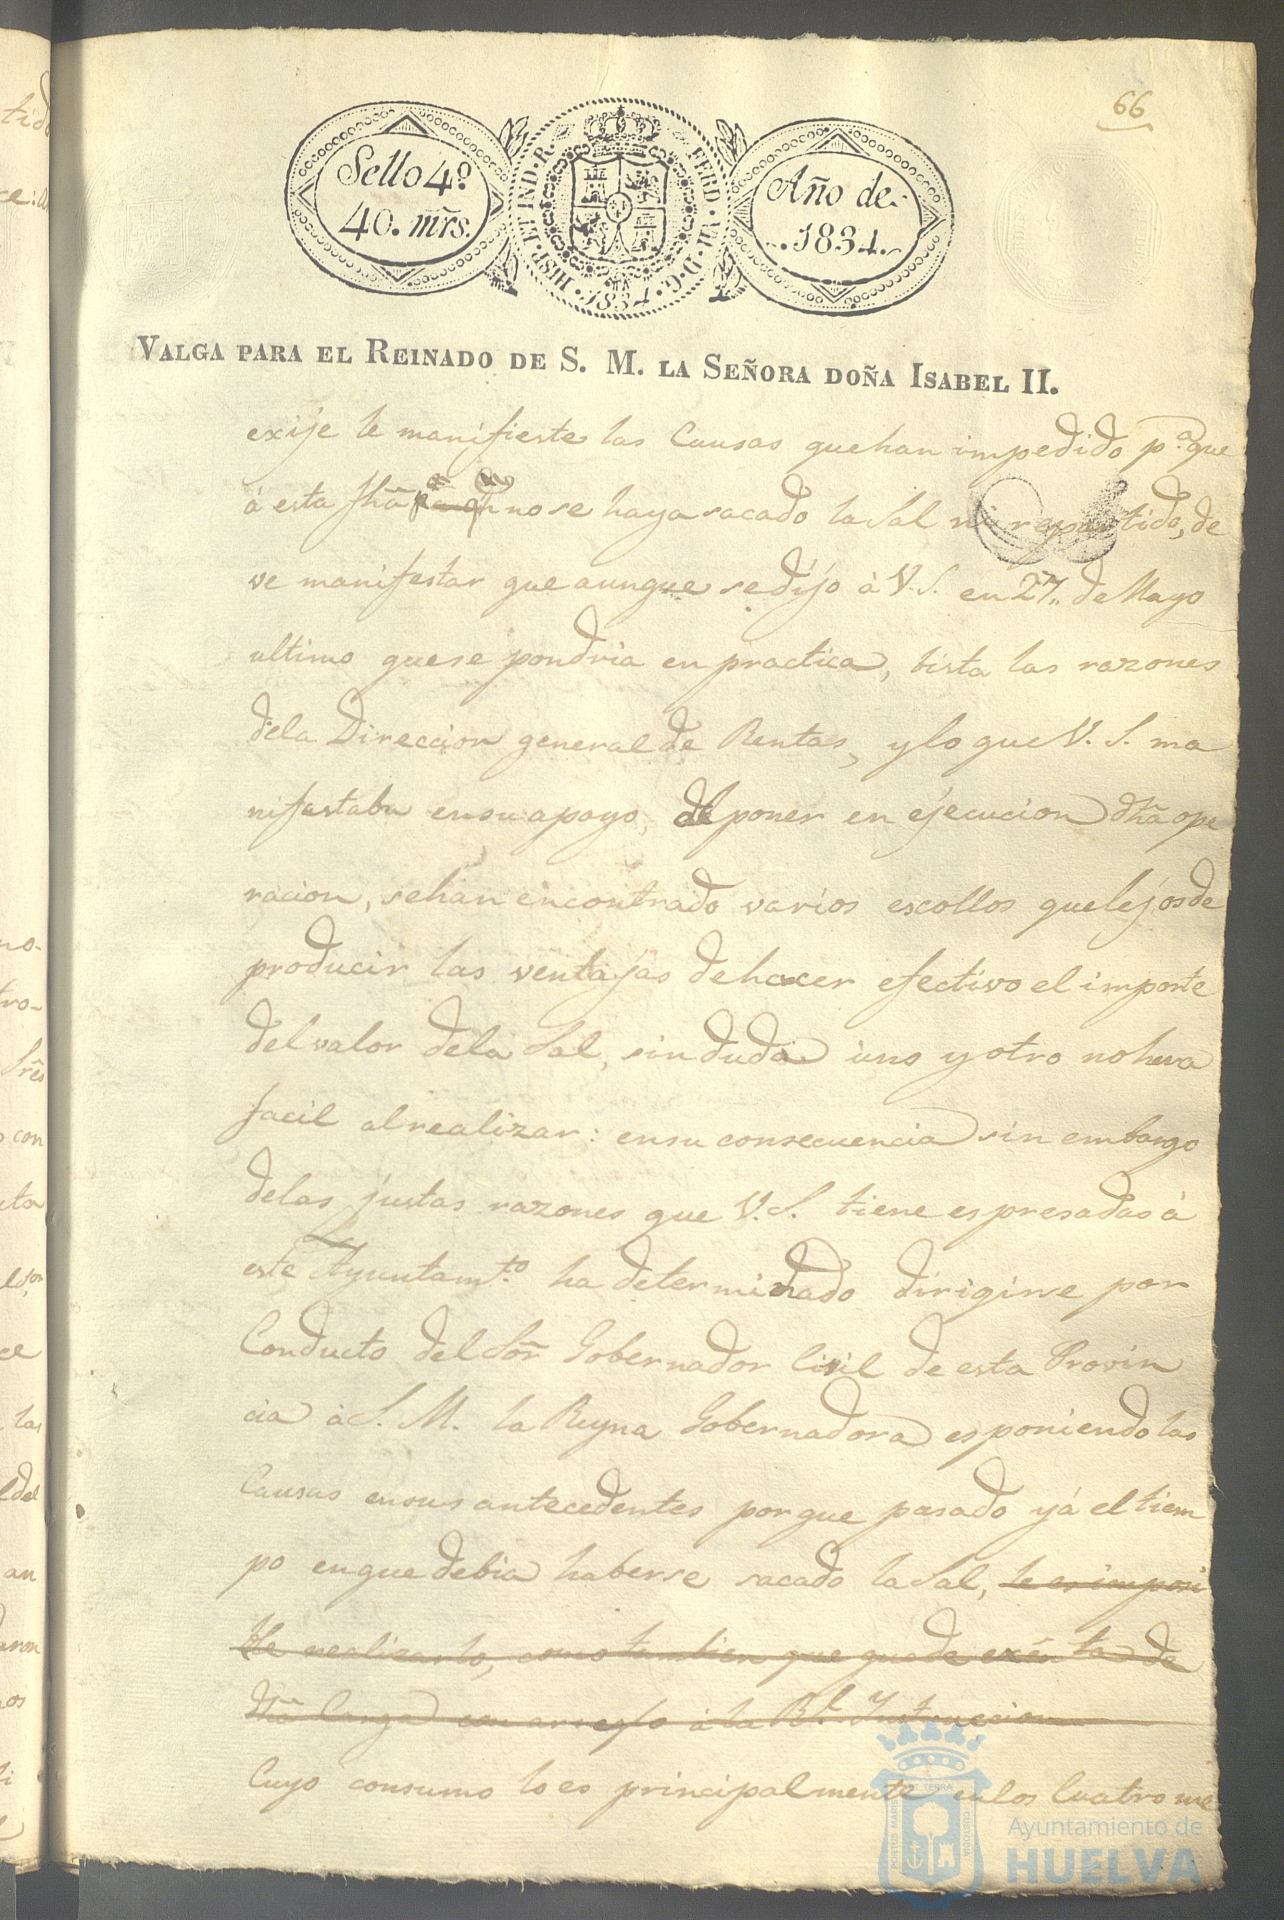 66
Sello 4º
40. mrs.
HISP. ET IND. R. FERD. VII. D. G. 1834.
Año de
1834.
VALGA PARA EL REINADO DE S. M. LA SEÑORA DOÑA ISABEL II.
exije le manifieste las Causas quehan impedido p.ª que
á esta fhã no se haya sacado la Sal ni repartido, de
ve manifestar que aunque se dijo à V. S. en 27,, de Mayo
ultimo quese pondria en practica, bista las razones
dela Direccion general de Rentas, y lo que V. S. ma
nifestaba ensu apoyo, al poner en ejecucion dhã ope
racion, sehan encontrado varios escollos quelejosde
producir las ventajas dehacer efectivo el importe
del valor dela Sal, sin duda uno y otro no hera
facil alrealizar: ensu consecuencia sin embargo
delas justas razones que V. S. tiene espresadas à
este Ayuntam.to ha determinado dirigirse por
Conducto del Sor Gobernador Civil de esta Provin
cia à S. M. la Reyna Gobernadora esponiendo las
Causas ensus antecedentes porque pasado yá el tiem
po enque debia haberse sacado la Sal, le es imposi
ble realizarlo, como tambien que quede exénta de
dhã Carga con arreglo à la Rl. Ynstruccion
Cuyo consumo lo es principalmente enlos Cuatro me
PORTUS MARIS ET TERRAE CUSTODIA
Ayuntamiento de
HUELVA